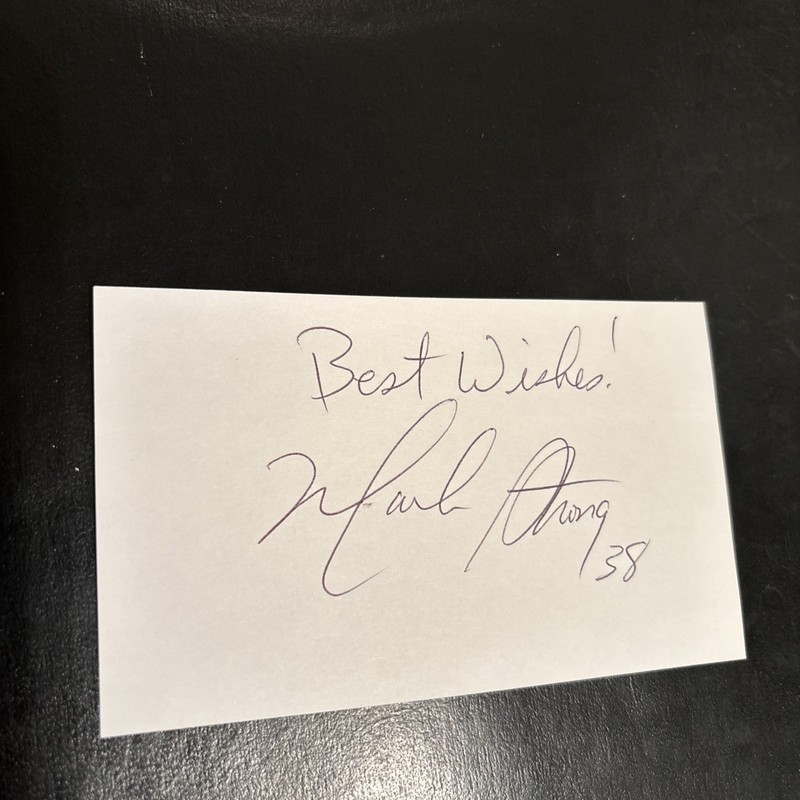 Best Wishes!
Mark Strong
38